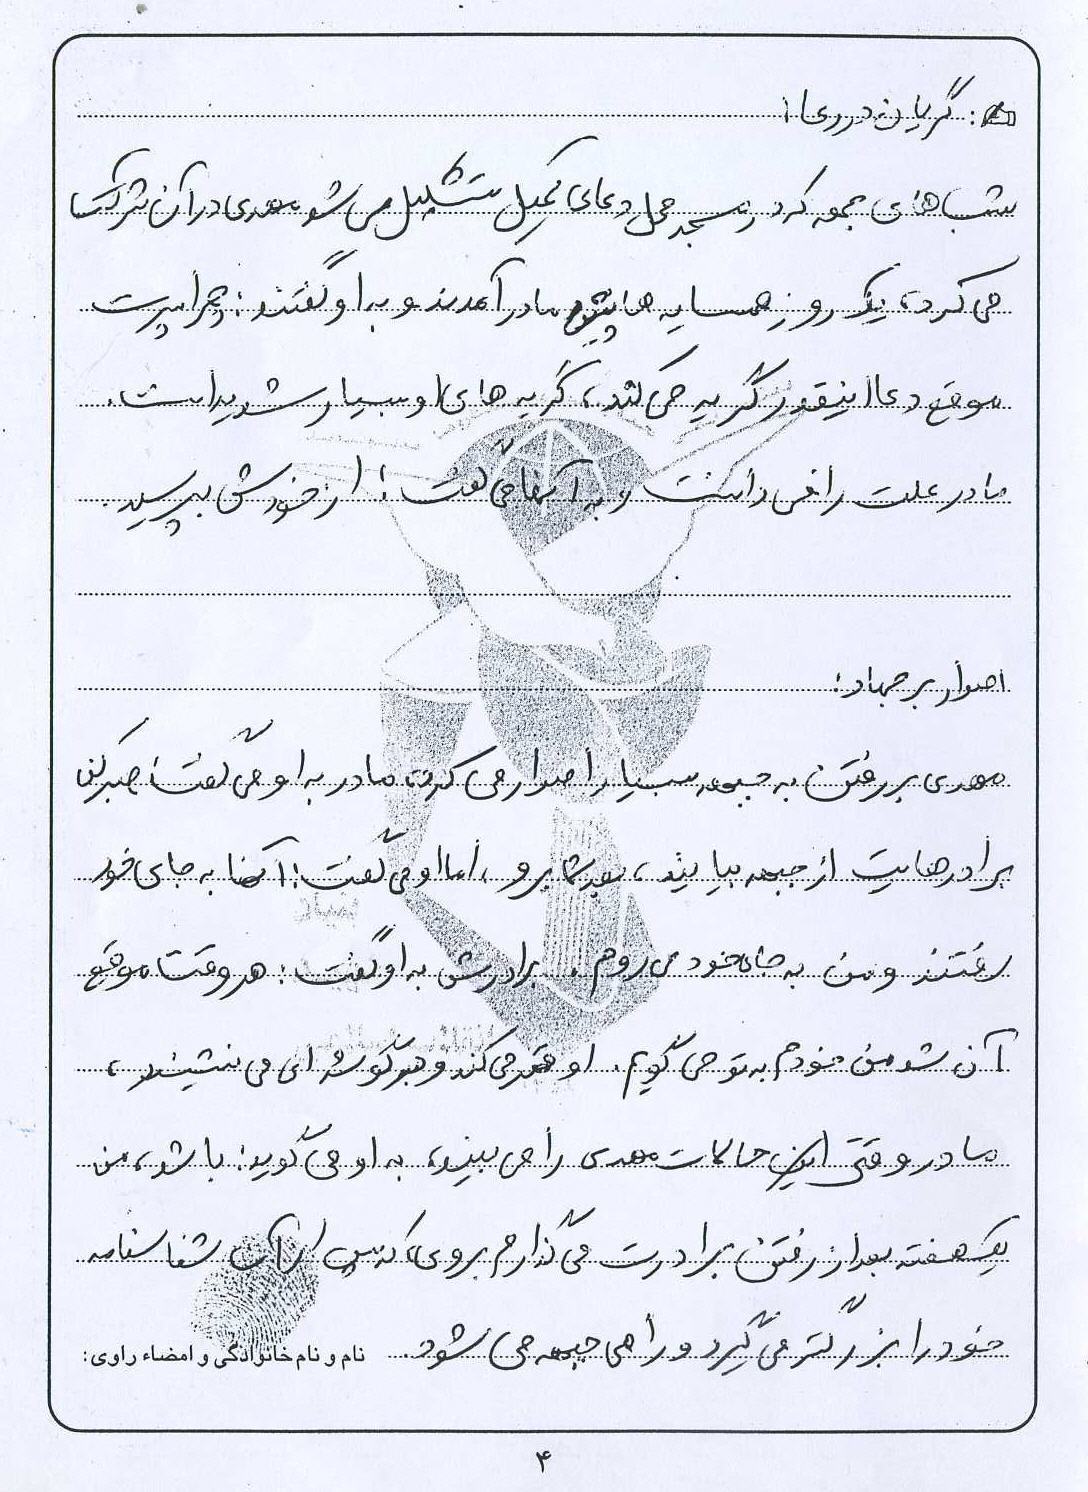 گریان در دعا:
شب های جمعه که در مسجد محل دعای کمیل تشکیل می شد مهدی در آن شرکت
می کرد، یک روز همسایه ها پیش مادر آمدند و به او گفتند: چرا پسرت
موقع دعا اینقدر گریه می کند، گریه های او بسیار شدید است.
مادر علت را می دانست و به آنها می گفت: از خودش بپرسید.
اصرار بر جهاد:
مهدی بر رفتن به جبهه بسیار اصرار می کرد، مادر به او می گفت: صبر کن
برادرهایت از جبهه بیایند، بعد شما برو، اما او می گفت: آنها به جای خود
رفتند و من به جای خود می روم. برادرش به او گفت: هر وقت موقع
آن شد من خودم به تو می گویم. او قهر می کند و در گوشه ای می نشیند،
مادر وقتی این حالات مهدی را می بیند، به او می گوید: باشد، من
یک هفته بعد از رفتن برادرت می گذارم بروی، که پس از آن شناسنامه
خود را بزرگتر می گیرد و راهی جبهه می شود.
نام و نام خانوادگی و امضاء راوی:
۴